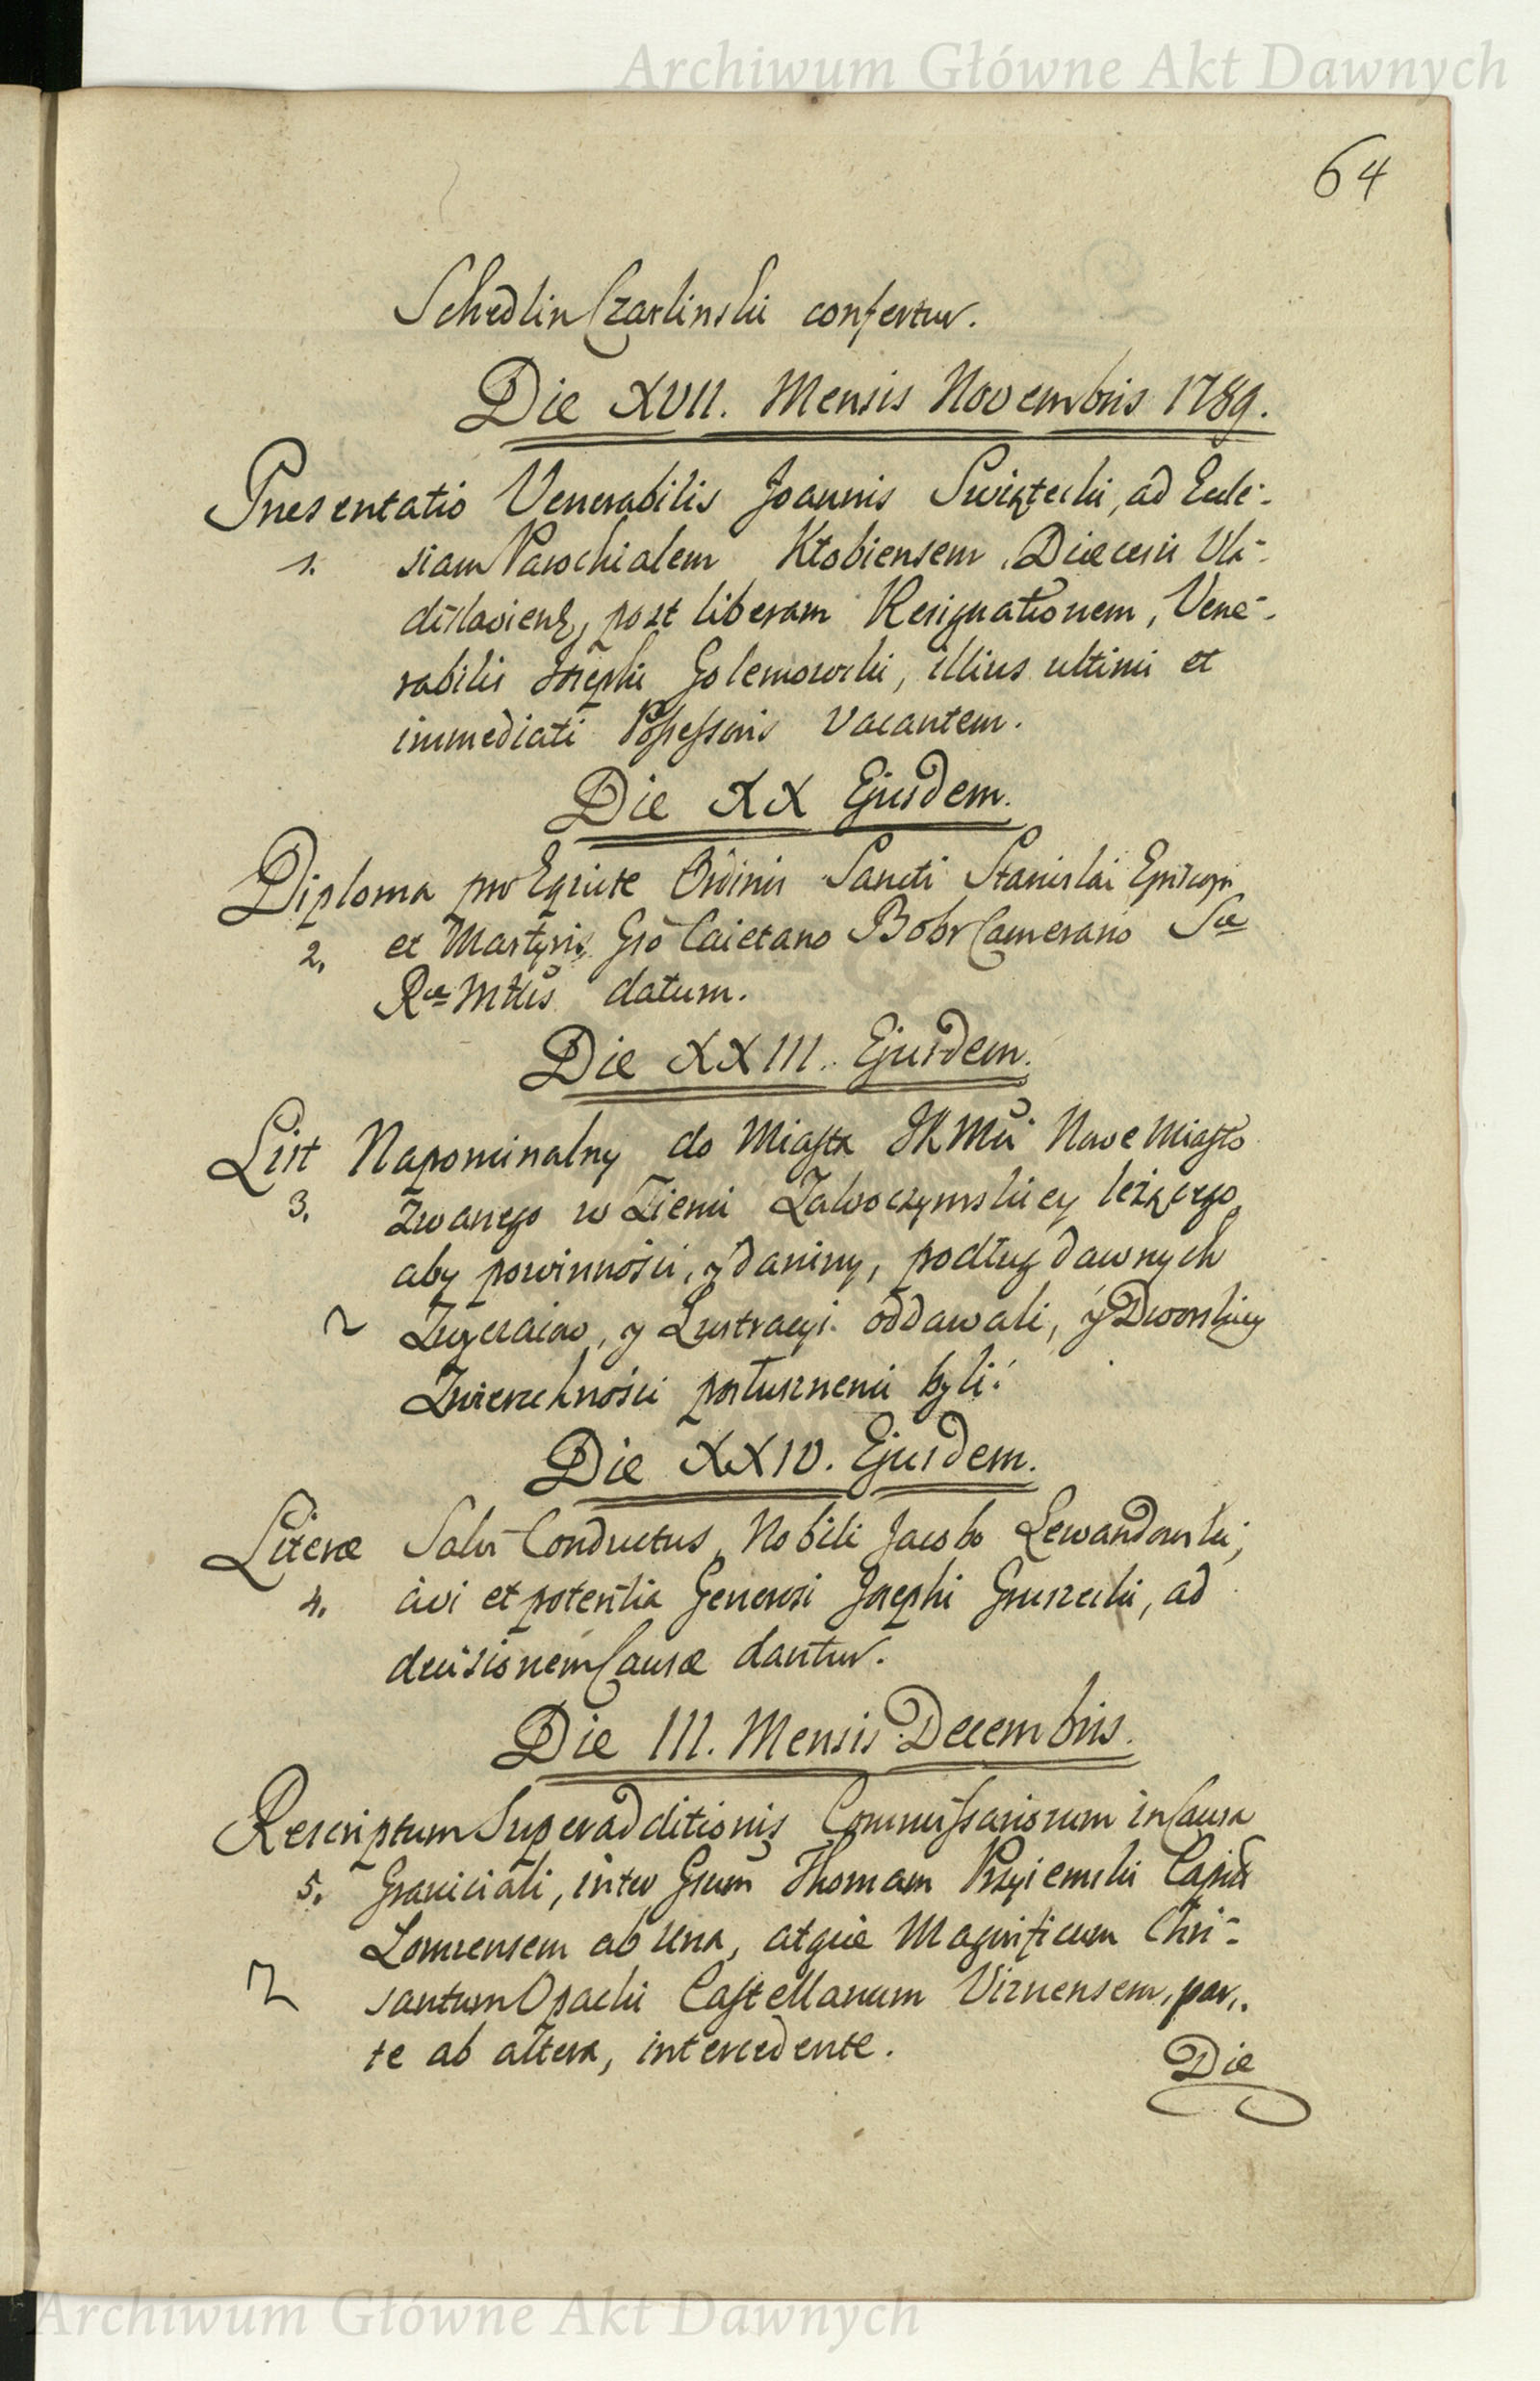 Archiwum Główne Akt Dawnych
64
Schedlin Czarlinski confertur.
Die XVII. Mensis Novembris 1789.
Presentatio Venerabilis Joannis Swiątecki, ad Eccle-
1. siam Parochialem Kłobiensem, Diæcesis Vla-
dislaviens, post liberam Resignationem, Vene-
rabilis Josephi Golemowski, illius ultimi et
immediati Possessoris vacantem.
Die XX Ejusdem.
Diploma pro Equite Ordinis Sancti Stanislai Episcopi
2. et Martyris Gso Caietano Bobr Camerario Sæ
Ræ Mttis datum.
Die XXIII. Ejusdem.
List Napominalny do Miasta JKMci Nowe Miasto
3. zwanego w Ziemi Zakroczymskiey leżącego
aby powinności, y daniny, podług dawnych
Zwyczaiow, y Lustracyi oddawali, y Dworskiey
Zwierzchności posłusznemi byli.
Die XXIV. Ejusdem.
Literæ Salvi Conductus, Nobili Jacobo Lewandowski,
4. a vi et potentia Generosi Josephi Gruszecki, ad
decisionem Causæ dantur.
Die III. Mensis Decembris.
Rescriptum Superadditionis Commissariorum in Causa
5. Graniciali, inter Gsum Thomam Przyiemski Capit
Lomzensem ab una, atque Magnificum Chri-
santum Opacki Castellanum Viznensem, par-
te ab altera, intercedente.
Die
Archiwum Główne Akt Dawnych